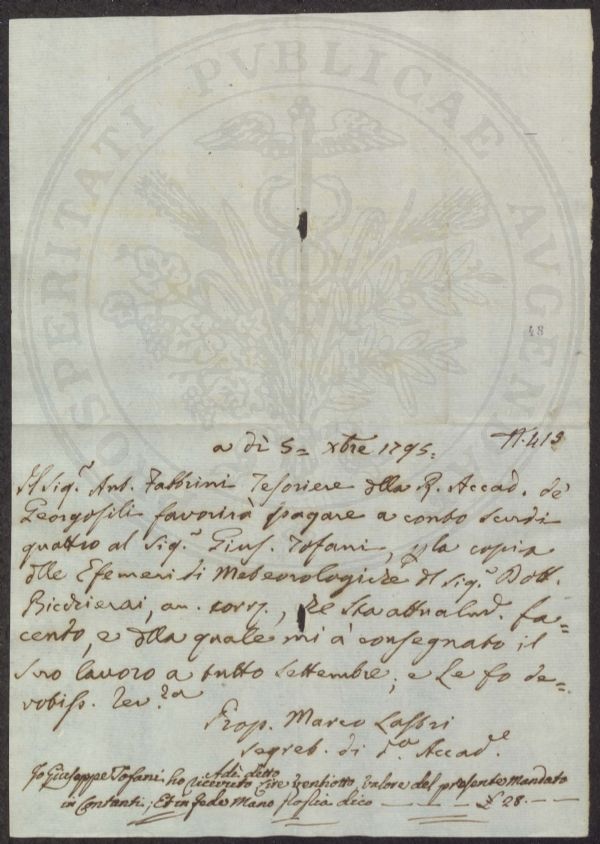 PROSPERITATI PVBLICAE AVGENDAE
48
a dì 5 = Xbre 1795.
N. 413
Il Sig.r Ant. Fabbrini Tesoriere della R. Accad. de'
Georgofili favorirà pagare a conto scudi
quattro al Sig.r Gius. Tofani, p la copia
delle Efemeridi Meteorologiche del Sig.r Dott.
an. corrs., che sta attualm. fa=
cendo, e della quale mi à consegnato il
suo lavoro a tutto settembre; e le fo de=
votiss. rev.za
Prop. Marco Lastri
Segret. di d.a Accad.e
Adì detto
Io Giuseppe Tofani ho ricevuto lire ventiotto valore del presente Mandato
in Contanti; Et in fede Mano ppia dico — — — £ 28. — —